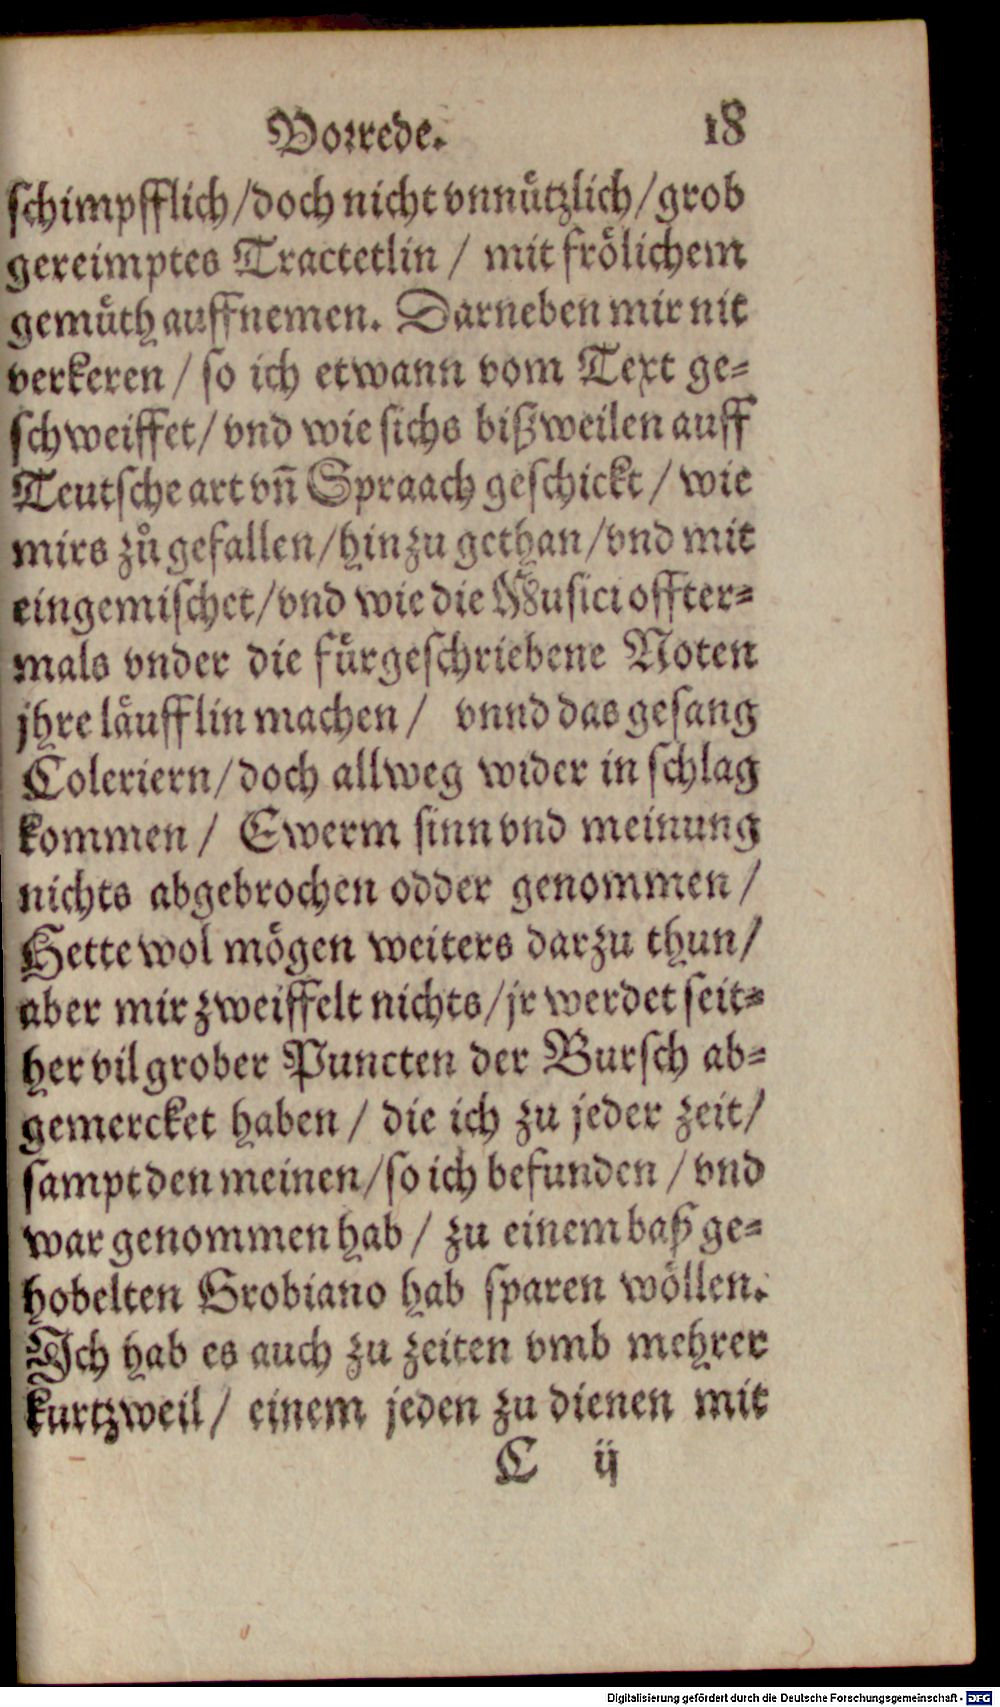 Vorrede. 18
schimpfflich/doch nicht vnnuͤtzlich/grob
gereimptes Tractetlin / mit froͤlichem
gemuͤth auffnemen. Darneben mir nit
verkeren / so ich etwann vom Text ge=
schweiffet/ vnd wie sichs bißweilen auff
Teutsche art vñ Spraach geschickt / wie
mirs zuͦ gefallen/hinzu gethan/vnd mit
eingemischet/vnd wie die Musici offter=
mals vnder die fuͤrgeschriebene Noten
jhre laͤufflin machen / vnnd das gesang
Coleriern/doch allweg wider in schlag
kommen / Ewerm sinn vnd meinung
nichts abgebrochen odder genommen /
Hette wol moͤgen weiters darzu thun/
aber mir zweiffelt nichts/jr werdet seit=
her vil grober Puncten der Bursch ab=
gemercket haben / die ich zu jeder zeit/
sampt den meinen/so ich befunden / vnd
war genommen hab / zu einem baß ge=
hobelten Grobiano hab sparen woͤllen.
Ich hab es auch zu zeiten vmb mehrer
kurtzweil / einem jeden zu dienen mit
C ij
Digitalisierung gefördert durch die Deutsche Forschungsgemeinschaft - DFG